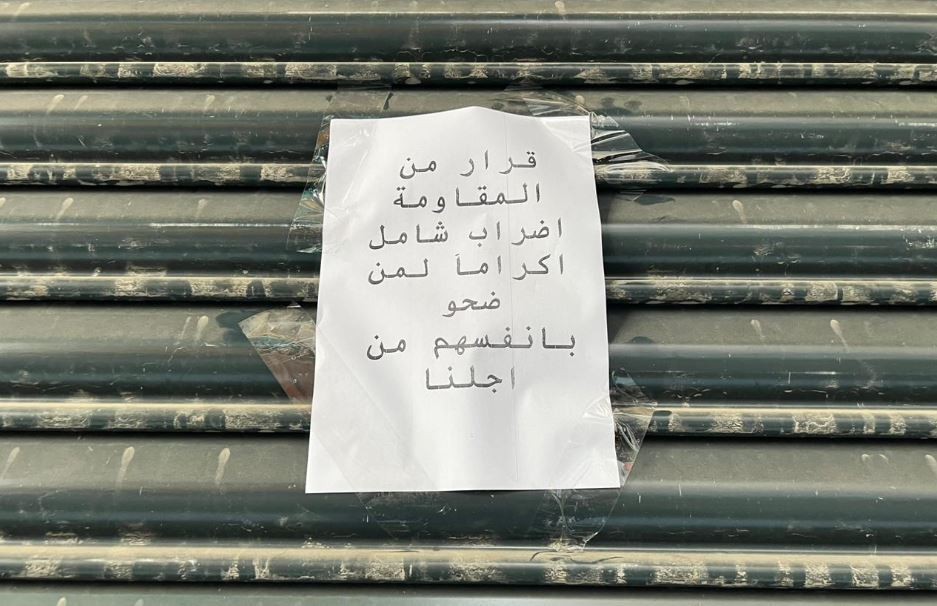 قرار من
المقاومة
اضراب شامل
اكراماً لمن
ضحو
بانفسهم من
اجلنا